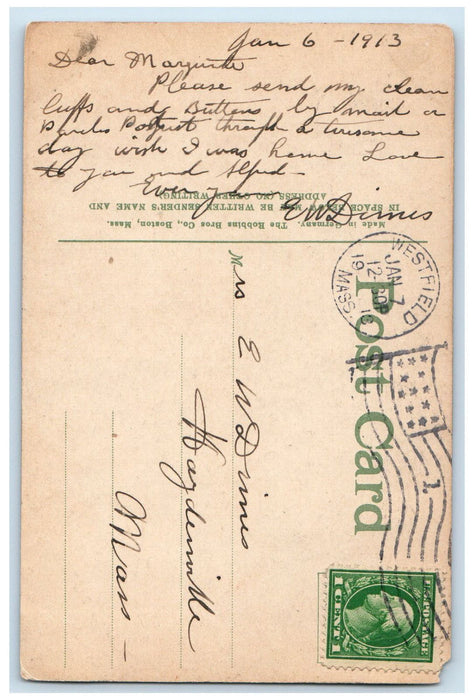 Jan 6 - 1913
Dear Margurite
Please send my clean
Cuffs and Buttons by mail or
Parcels Post just through a tiresome
day wish I was home Love
to you and
Ever yours
E W Dimes
IN SPACE BELOW MAY BE WRITTEN SENDER'S NAME AND
ADDRESS (NO OTHER WRITING)
Made in Germany. The Robbins Bros Co., Boston, Mass.
Post Card
WESTFIELD
JAN 7
12-30P
19
MASS.
U.S. POSTAGE
1 CENT 1
Mrs E W Dimes
Haydenville
Mass -